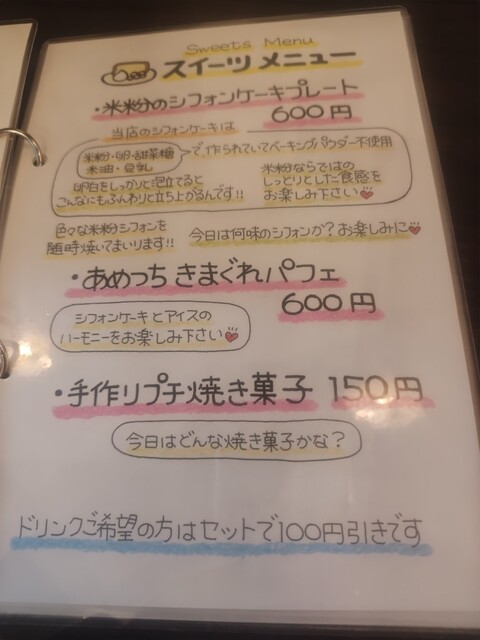 Sweets Menu
スイーツ メニュー
・米粉のシフォンケーキプレート
600円
当店のシフォンケーキは
米粉・卵・甜菜糖
米油・豆乳
で、作られていてベーキングパウダー不使用
卵白をしっかりと泡立てると
こんなにもふんわりと立ち上がるんです!!
米粉ならではの
しっとりとした食感を
お楽しみ下さい
色々な米粉シフォンを
随時焼いてまいります!!
今日は何味のシフォンか?お楽しみに
・あめっち きまぐれパフェ
600円
シフォンケーキとアイスの
ハーモニーをお楽しみ下さい
・手作りプチ焼き菓子 150円
今日はどんな焼き菓子かな?
ドリンクご希望の方はセットで100円引きです